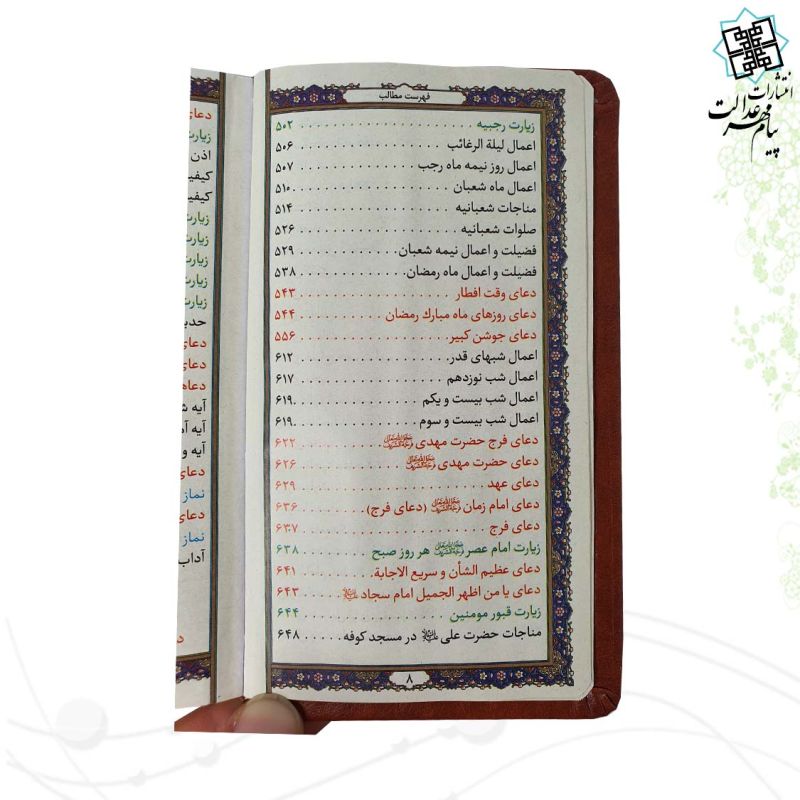 انتشارات
پیام مهر عدالت
فهرست مطالب
زیارت رجبیه ۵۰۲
اعمال لیلة الرغائب ۵۰۶
اعمال روز نیمه ماه رجب ۵۰۷
اعمال ماه شعبان ۵۱۰
مناجات شعبانیه ۵۱۴
صلوات شعبانیه ۵۲۶
فضیلت و اعمال نیمه شعبان ۵۲۹
فضیلت و اعمال ماه رمضان ۵۳۸
دعای وقت افطار ۵۴۳
دعای روزهای ماه مبارك رمضان ۵۴۴
دعای جوشن کبیر ۵۵۶
اعمال شبهای قدر ۶۱۲
اعمال شب نوزدهم ۶۱۷
اعمال شب بیست و یکم ۶۱۹
اعمال شب بیست و سوم ۶۱۹
دعای فرج حضرت مهدی ۶۲۲
دعای حضرت مهدی ۶۲۶
دعای عهد ۶۲۹
دعای امام زمان (دعای فرج) ۶۳۶
دعای فرج ۶۳۷
زیارت امام عصر هر روز صبح ۶۳۸
دعای عظیم الشأن و سریع الاجابة ۶۴۱
دعای یا من اظهر الجمیل امام سجاد ۶۴۳
زیارت قبور مومنین ۶۴۴
مناجات حضرت علی در مسجد کوفه ۶۴۸
۸
دعای
زیارت
اذن
زیارت
زیارت
زیارت
زیارت
زیارت
دعای
دعای
آیه
آیه
آیه و
دعای
نماز
دعای
نماز
آداب